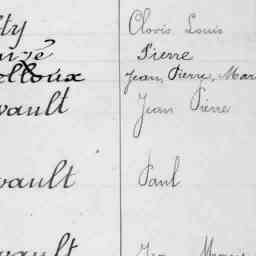 lty Clovis Louis
aizé Pierre
elloux Jean, Pierre, Mar
vault Jean Pierre
vault Paul
vault Jean Marie